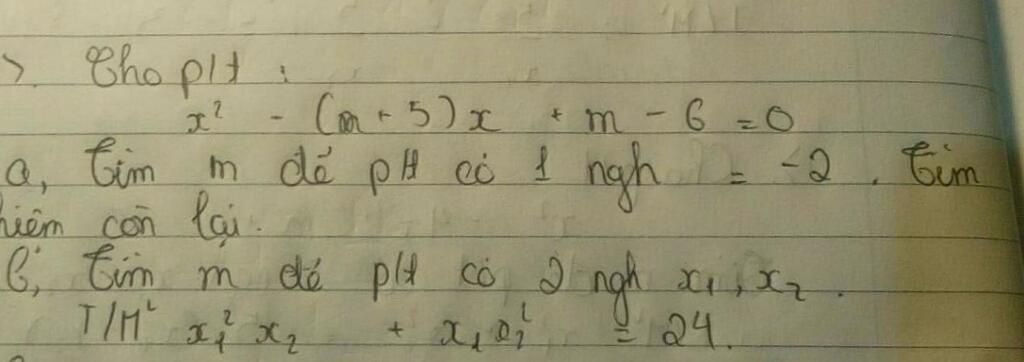 > Cho pH :
x² - (m + 5)x + m - 6 = 0
a, Tìm m để pH có 1 ngh = -2 . Tìm
hiêm còn lại.
b, Tìm m để pH có 2 ngh x₁, x₂ .
T/M² x₁² x₂ + x₁ x₂² = 24.